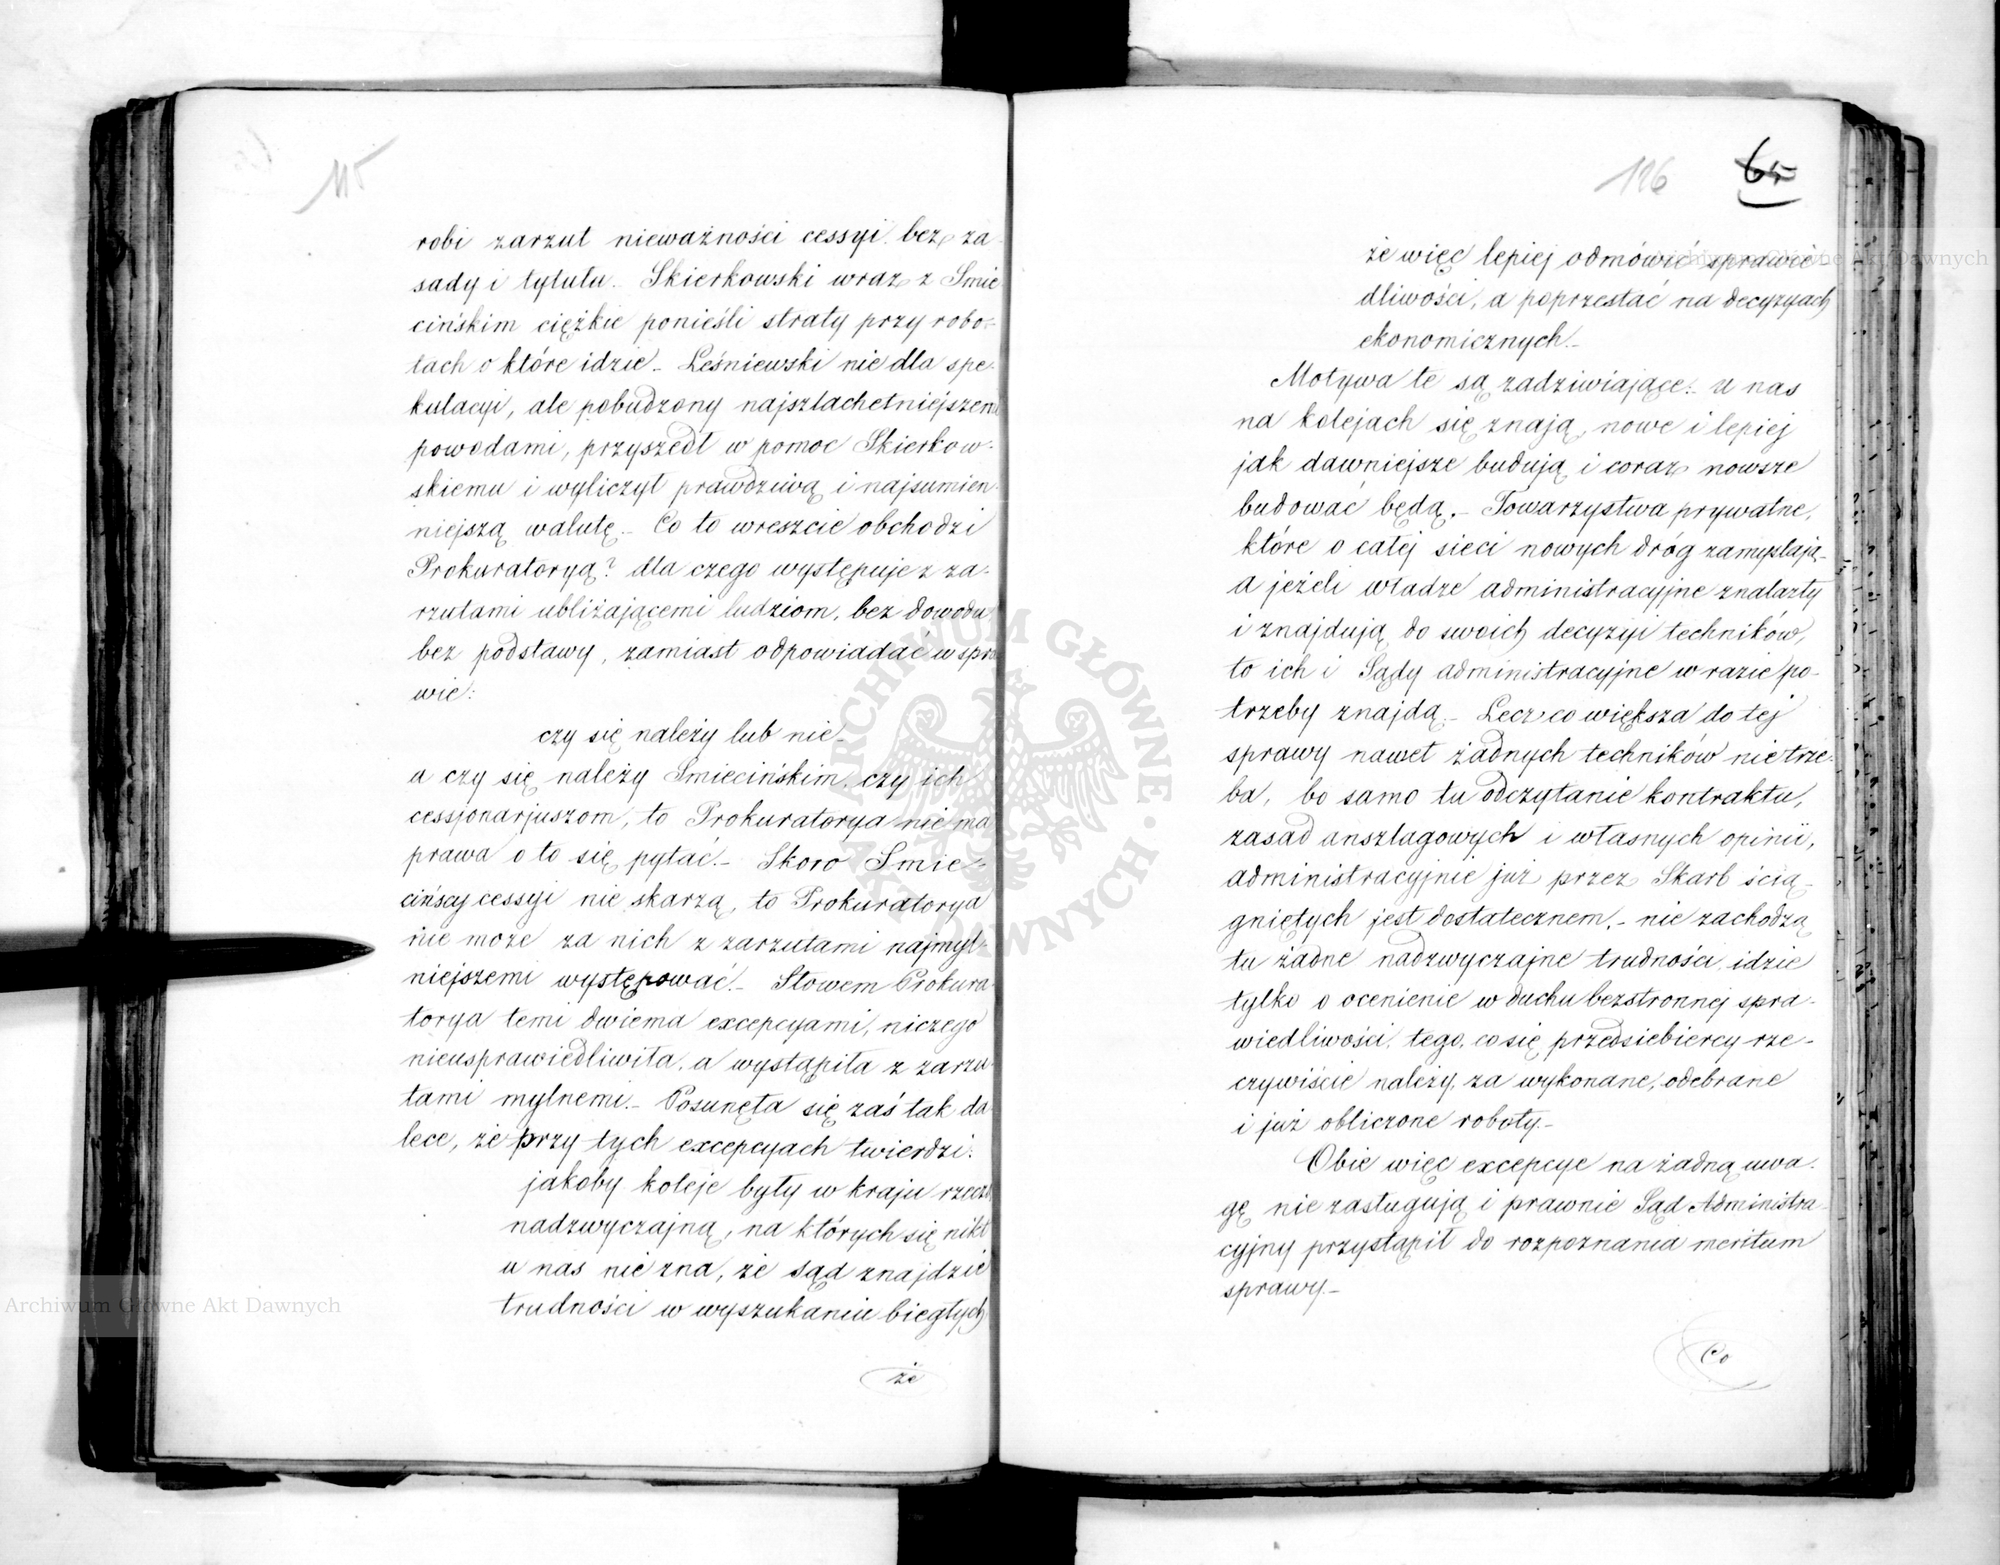 115
robi zarzut nieważności cessyi bez za
sady i tytułu. Skierkowski wraz z Śmie
cińskim ciężkie ponieśli straty przy robo-
tach o które idzie_ Leśniewski nie dla spe-
kulacyi, ale pobudzony najszlachetniejszemi
powodami, przyszedł w pomoc Skierkow-
skiemu i wyliczył prawdziwą i najsumien-
niejszą walutę_ Co to wreszcie obchodzi
Prokuratoryą? dla czego występuje z za-
rzutami ubliżającemi ludziom, bez dowodu
bez podstawy, zamiast odpowiadać w spra
wie:
czy się należy lub nie_
a czy się należy Śmiecińskim, czy ich
cessjonarjuszom, to Prokuratorya nie ma
prawa o to się pytać._ Skoro Śmie-
cińscy cessyi nie skarzą, to Prokuratorya
nie może za nich z zarzutami najmyl-
niejszemi występować._ Słowem Prokura-
torya temi dwiema excepcyami, niczego
nieusprawiedliwiła, a wystąpiła z zarzu-
tami mylnemi._ Posunęła się zaś tak da
lece, że przy tych excepcyach twierdzi:
jakoby koleje były w kraju rzeczą
nadzwyczajną, na których się nikt
u nas nie zna, że sąd znajdzie
trudności w wyszukaniu biegłych
że
116
65
że więc lepiej odmówić sprawie-
dliwości, a poprzestać na decyzyach
ekonomicznych._
Motywa te są zadziwiające._ u nas
na kolejach się znają, nowe i lepiej
jak dawniejsze budują i coraz nowsze
budować będą._ Towarzystwa prywatne,
które o całej sieci nowych dróg zamyślają_
a jeżeli władze administracyjne znalazły
i znajdują do swoich decyzyi techników,
to ich i Sądy administracyjne w razie po-
trzeby znajdą._ Lecz co większa do tej
sprawy nawet żadnych techników nie trze-
ba, bo samo tu odczytanie kontraktu,
zasad anszlagowych i własnych opinii,
administracyjnie już przez Skarb ścią-
gniętych jest dostatecznem._ nie zachodzą
tu żadne nadzwyczajne trudności, idzie
tylko o ocenienie w duchu bezstronnej spra-
wiedliwości, tego, co się przedsiebiercy rze-
czywiście należy, za wykonane, odebrane
i już obliczone roboty_
Obie więc excepcye na żadną uwa-
gę nie zasługują i prawnie Sąd Administra-
cyjny przystąpił do rozpoznania meritum
sprawy._
Co
Archiwum Główne Akt Dawnych
Archiwum Główne Akt Dawnych
ARCHIWUM GŁÓWNE AKT DAWNYCH